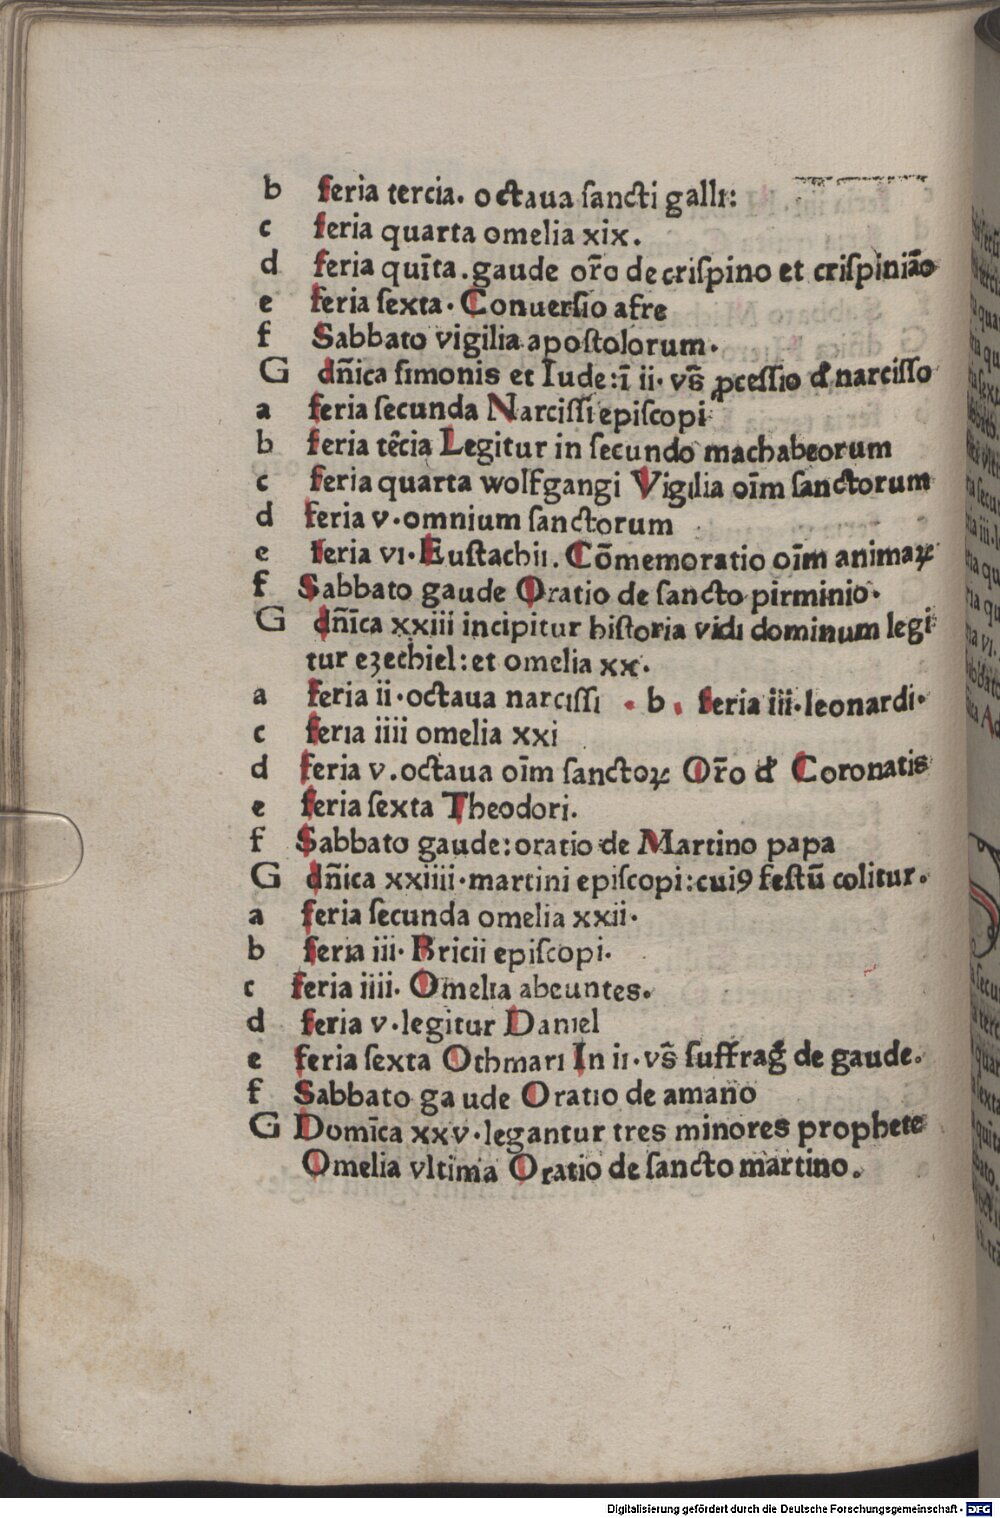 b feria tercia. octaua ſancti galli:
c feria quarta omelia xix.
d feria quīta. gaude or̄o de criſpino et criſpiniāo
e feria ſexta. Conuerſio afre
f Sabbato vigilia apoſtolorum.
G dn̄ica ſimonis et Iude: ī ii. vs̄ ꝓceſſio đ narciſſo
a feria ſecunda Narciſſi epiſcopi
b feria tēcia Legitur in ſecundo machabeorum
c feria quarta wolfgangi Vigilia oīm ſanctorum
d feria v. omnium ſanctorum
e feria vi. Euſtachii. Cōmemoratio oīm animaꝝ
f Sabbato gaude Oratio de ſancto pirminio.
G dn̄ica xxiii incipitur hiſtoria vidi dominum legi
tur eʒechiel: et omelia xx.
a feria ii. octaua narciſſi . b. feria iii. leonardi.
c feria iiii omelia xxi
d feria v. octaua oīm ſanctoꝝ Or̄o đ Coronatis
e feria ſexta Theodori.
f Sabbato gaude: oratio de Martino papa
G dn̄ica xxiiii. martini epiſcopi: cuiꝯ feſtū colitur.
a feria ſecunda omelia xxii.
b feria iii. Bricii epiſcopi.
c feria iiii. Omelia abeuntes.
d feria v. legitur Daniel
e feria ſexta Othmari In ii. vs̄ ſuffraḡ de gaude.
f Sabbato ga ude Oratio de amano
G Domīca xxv. legantur tres minores prophete
Omelia vltima Oratio de ſancto martino.
Digitalisierung gefördert durch die Deutsche Forschungsgemeinschaft - DFG